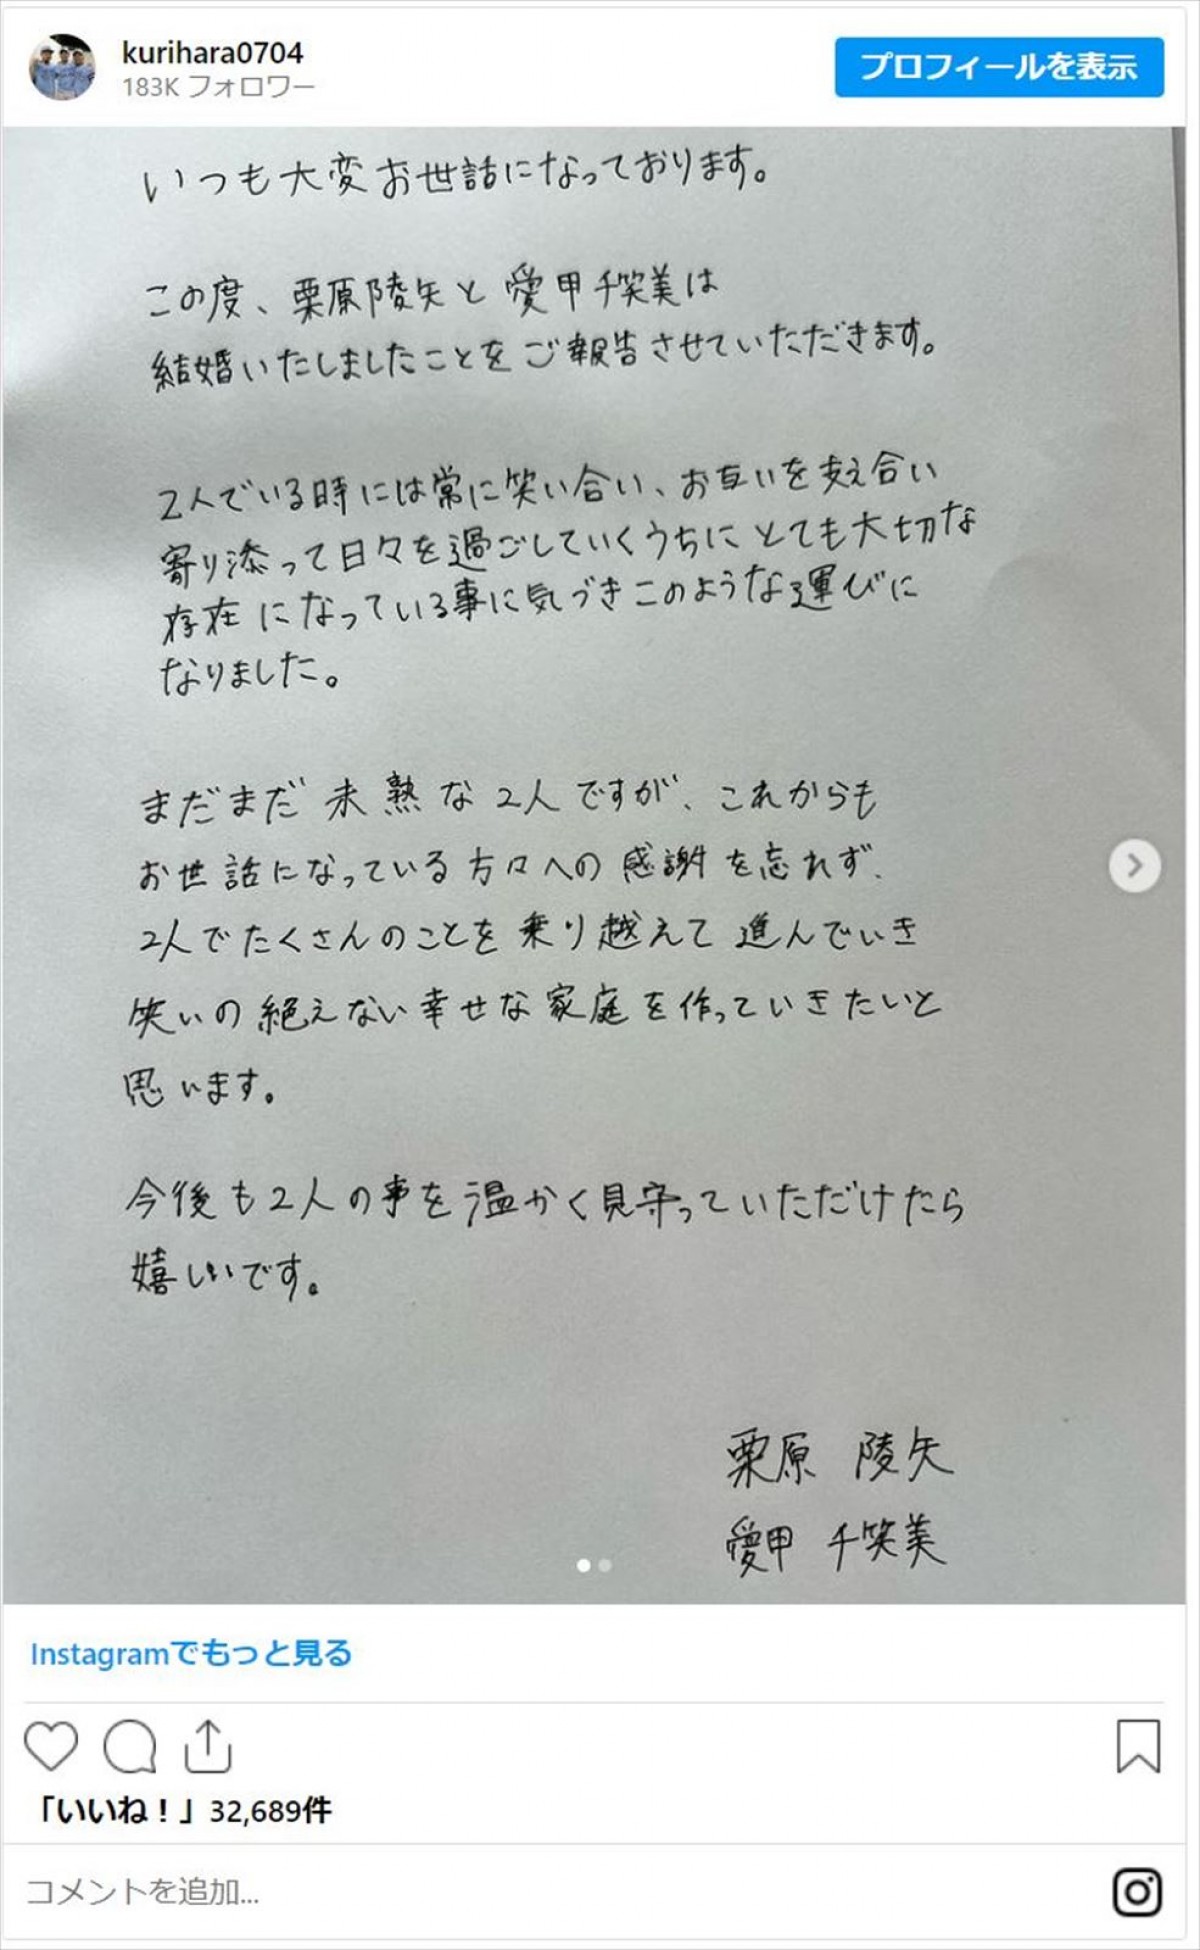 kurihara0704
183K フォロワー
プロフィールを表示
いつも大変お世話になっております。
この度、栗原陵矢と愛甲千笑美は
結婚いたしましたことをご報告させていただきます。
2人でいる時には常に笑い合い、お互いを支え合い
寄り添って日々を過ごしていくうちにとても大切な
存在になっている事に気づきこのような運びに
なりました。
まだまだ未熟な2人ですが、これからも
お世話になっている方々への感謝を忘れず、
2人でたくさんのことを乗り越えて進んでいき
笑いの絶えない幸せな家庭を作っていきたいと
思います。
今後も2人の事を温かく見守っていただけたら
嬉しいです。
栗原 陵矢
愛甲 千笑美
Instagramでもっと見る
「いいね！」32,689件
コメントを追加...